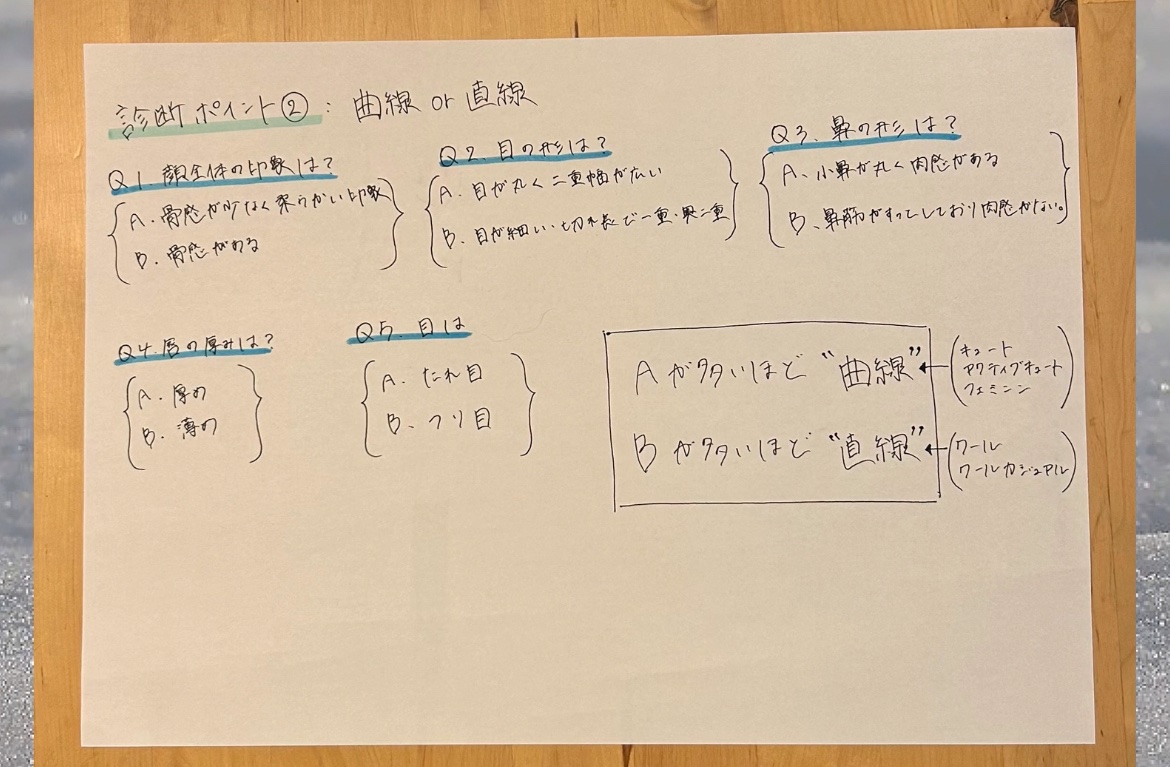 診断ポイント②：曲線 or 直線
Q1. 顔全体の印象は？
A. 骨感が少なく柔らかい印象
B. 骨感がある
Q2. 目の形は？
A. 目が丸く二重幅が広い
B. 目が細い・切れ長で一重・奥二重
Q3. 鼻の形は？
A. 小鼻が丸く肉感がある
B. 鼻筋がすっとしており肉感がない。
Q4. 唇の厚みは？
A. 厚め
B. 薄め
Q5. 目は
A. たれ目
B. つり目
Aが多いほど“曲線”
キュート
アクティブキュート
フェミニン
Bが多いほど“直線”
クール
クールカジュアル